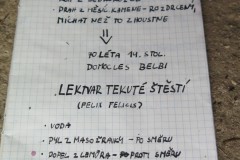 · DRAK Z MĚSÍČ. KAMENE - ROZDRCENÝ,
MÍCHAT NEŽ TO ZHOUSTNE
90 LÉTA 14. STOL.
DOMOCLES BELBI
LEKTVAR TEKUTÉ ŠTĚSTÍ
(FELIX FELICIS)
· VODA
· PYL Z MASOŽRAVKY - PO SMĚRU
· POPEL Z LEMŮRA - PROTI SMĚRU